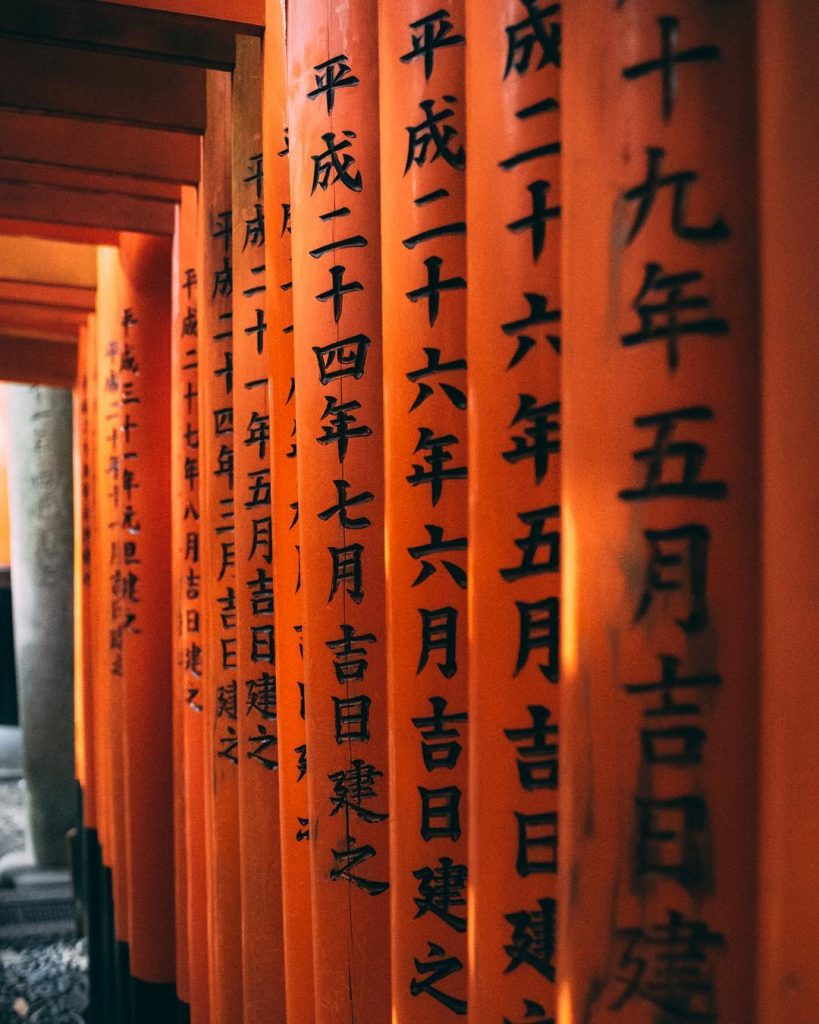 十九年五月吉日建
成二十六年五月吉日建
平成二十六年六月吉日建之
平成二十四年七月吉日建之
平成二十一年五月吉日建之
平成二十四年三月吉日建之
平成二十七年八月吉日建之
平成三十一年元旦建之